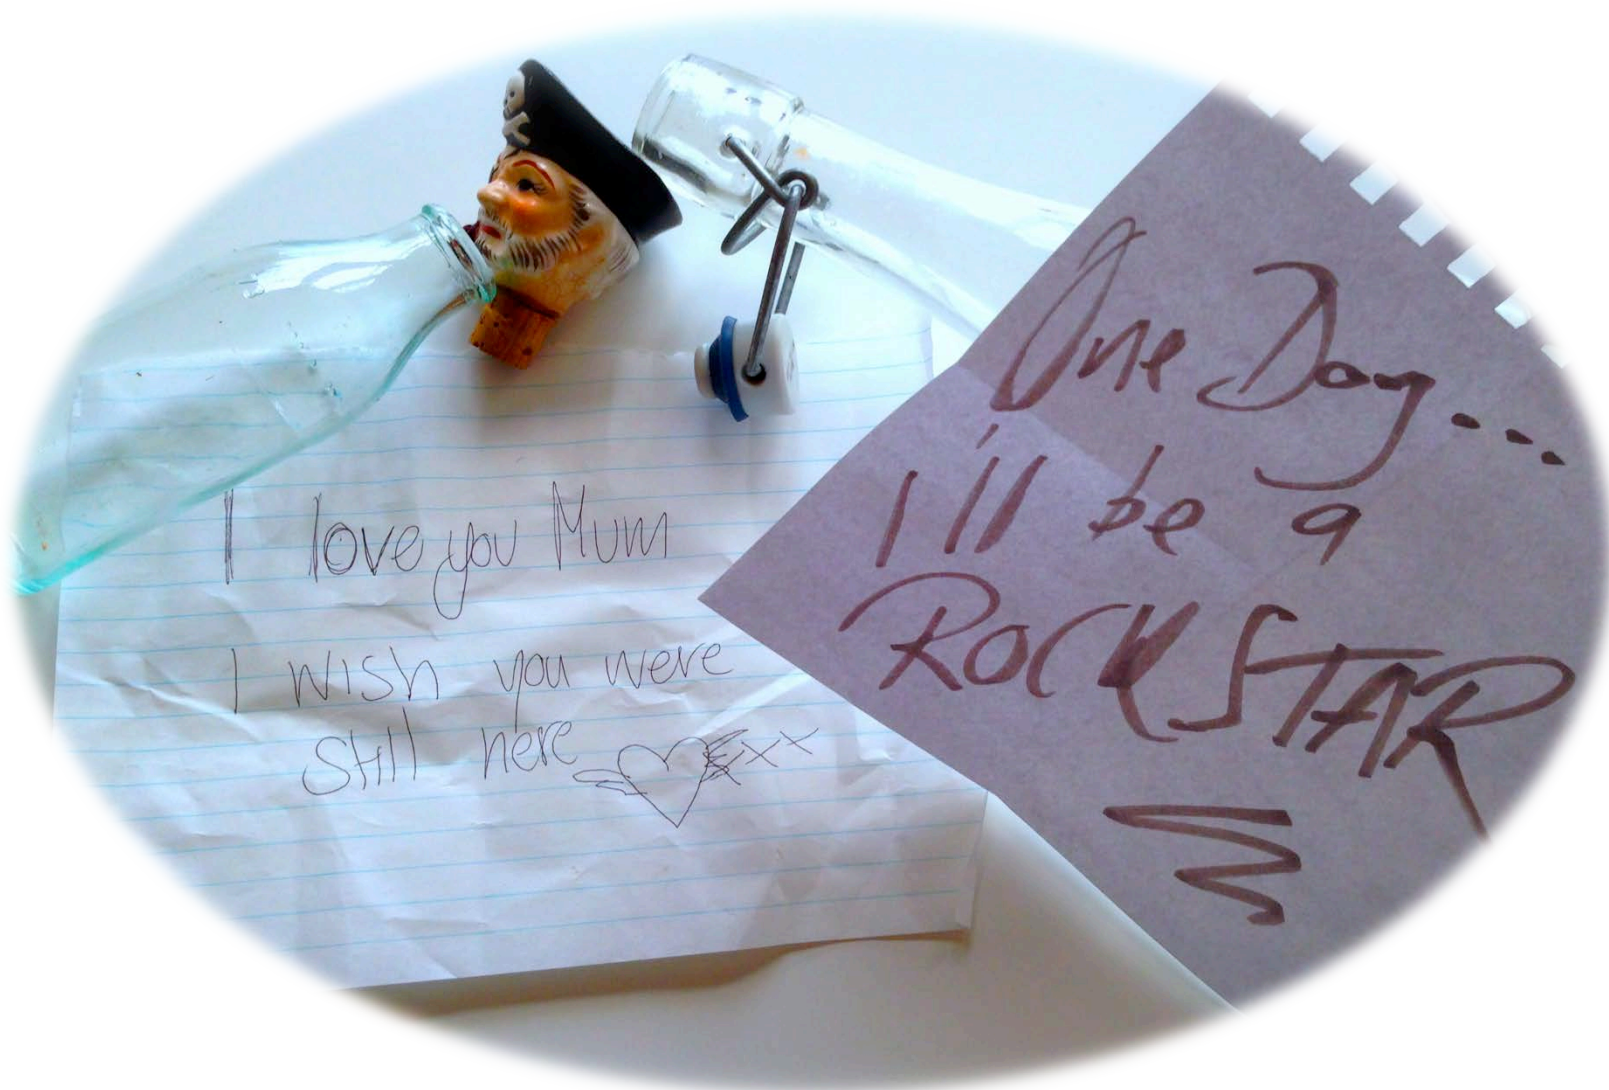 I love you Mum
I wish you were
still here
xxx
One Day...
I'll be a
ROCKSTAR